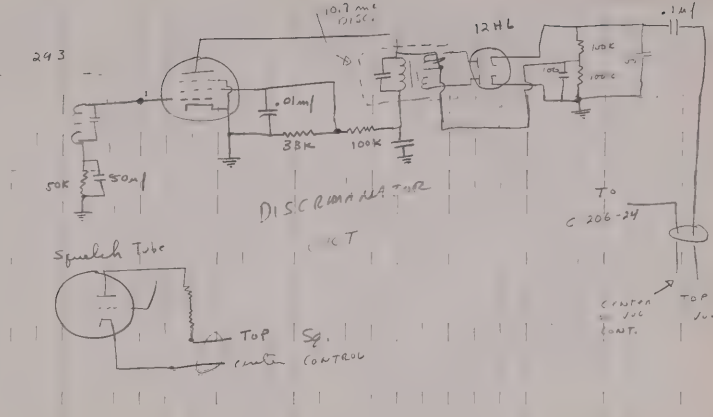 10.7 mc
DISC.
293
12H6
.1µf
100K
100K
100
.01mf
33K
100K
50K
50µµf
DISCRIMANATOR
CKT
TO
C 206-24
Squelch Tube
TOP Sq.
center CONTROL
CENTER
VOL
CONT.
TOP
VOL